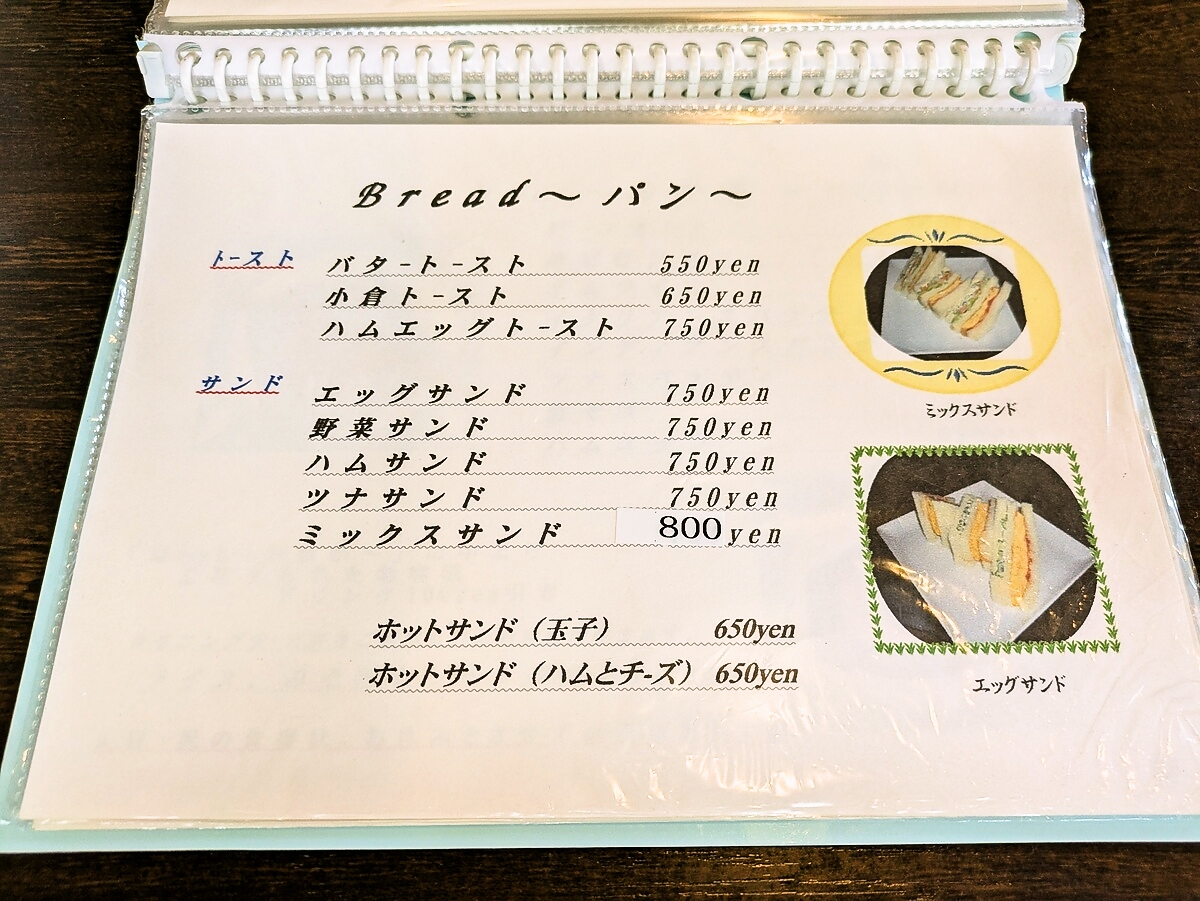 Bread～パン～
トースト バタートースト 550yen
小倉トースト 650yen
ハムエッグトースト 750yen
サンド エッグサンド 750yen
野菜サンド 750yen
ハムサンド 750yen
ツナサンド 750yen
ミックスサンド 800yen
ホットサンド（玉子） 650yen
ホットサンド（ハムとチーズ） 650yen
ミックスサンド
エッグサンド